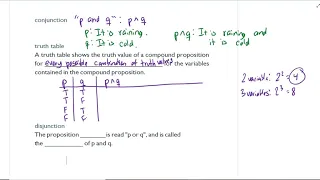 conjunction "p and q" : p ∧ q
p: It is raining.
q: It is cold.
p ∧ q: It is raining and it is cold
truth table
A truth table shows the truth value of a compound proposition
for every possible combination of truth values of the variables
contained in the compound proposition.
2 variables: 2² = 4
3 variables: 2³ = 8
p q p ∧ q
T T
T F
F T
F F
disjunction
The proposition ______ is read "p or q", and is called
the ______ of p and q.